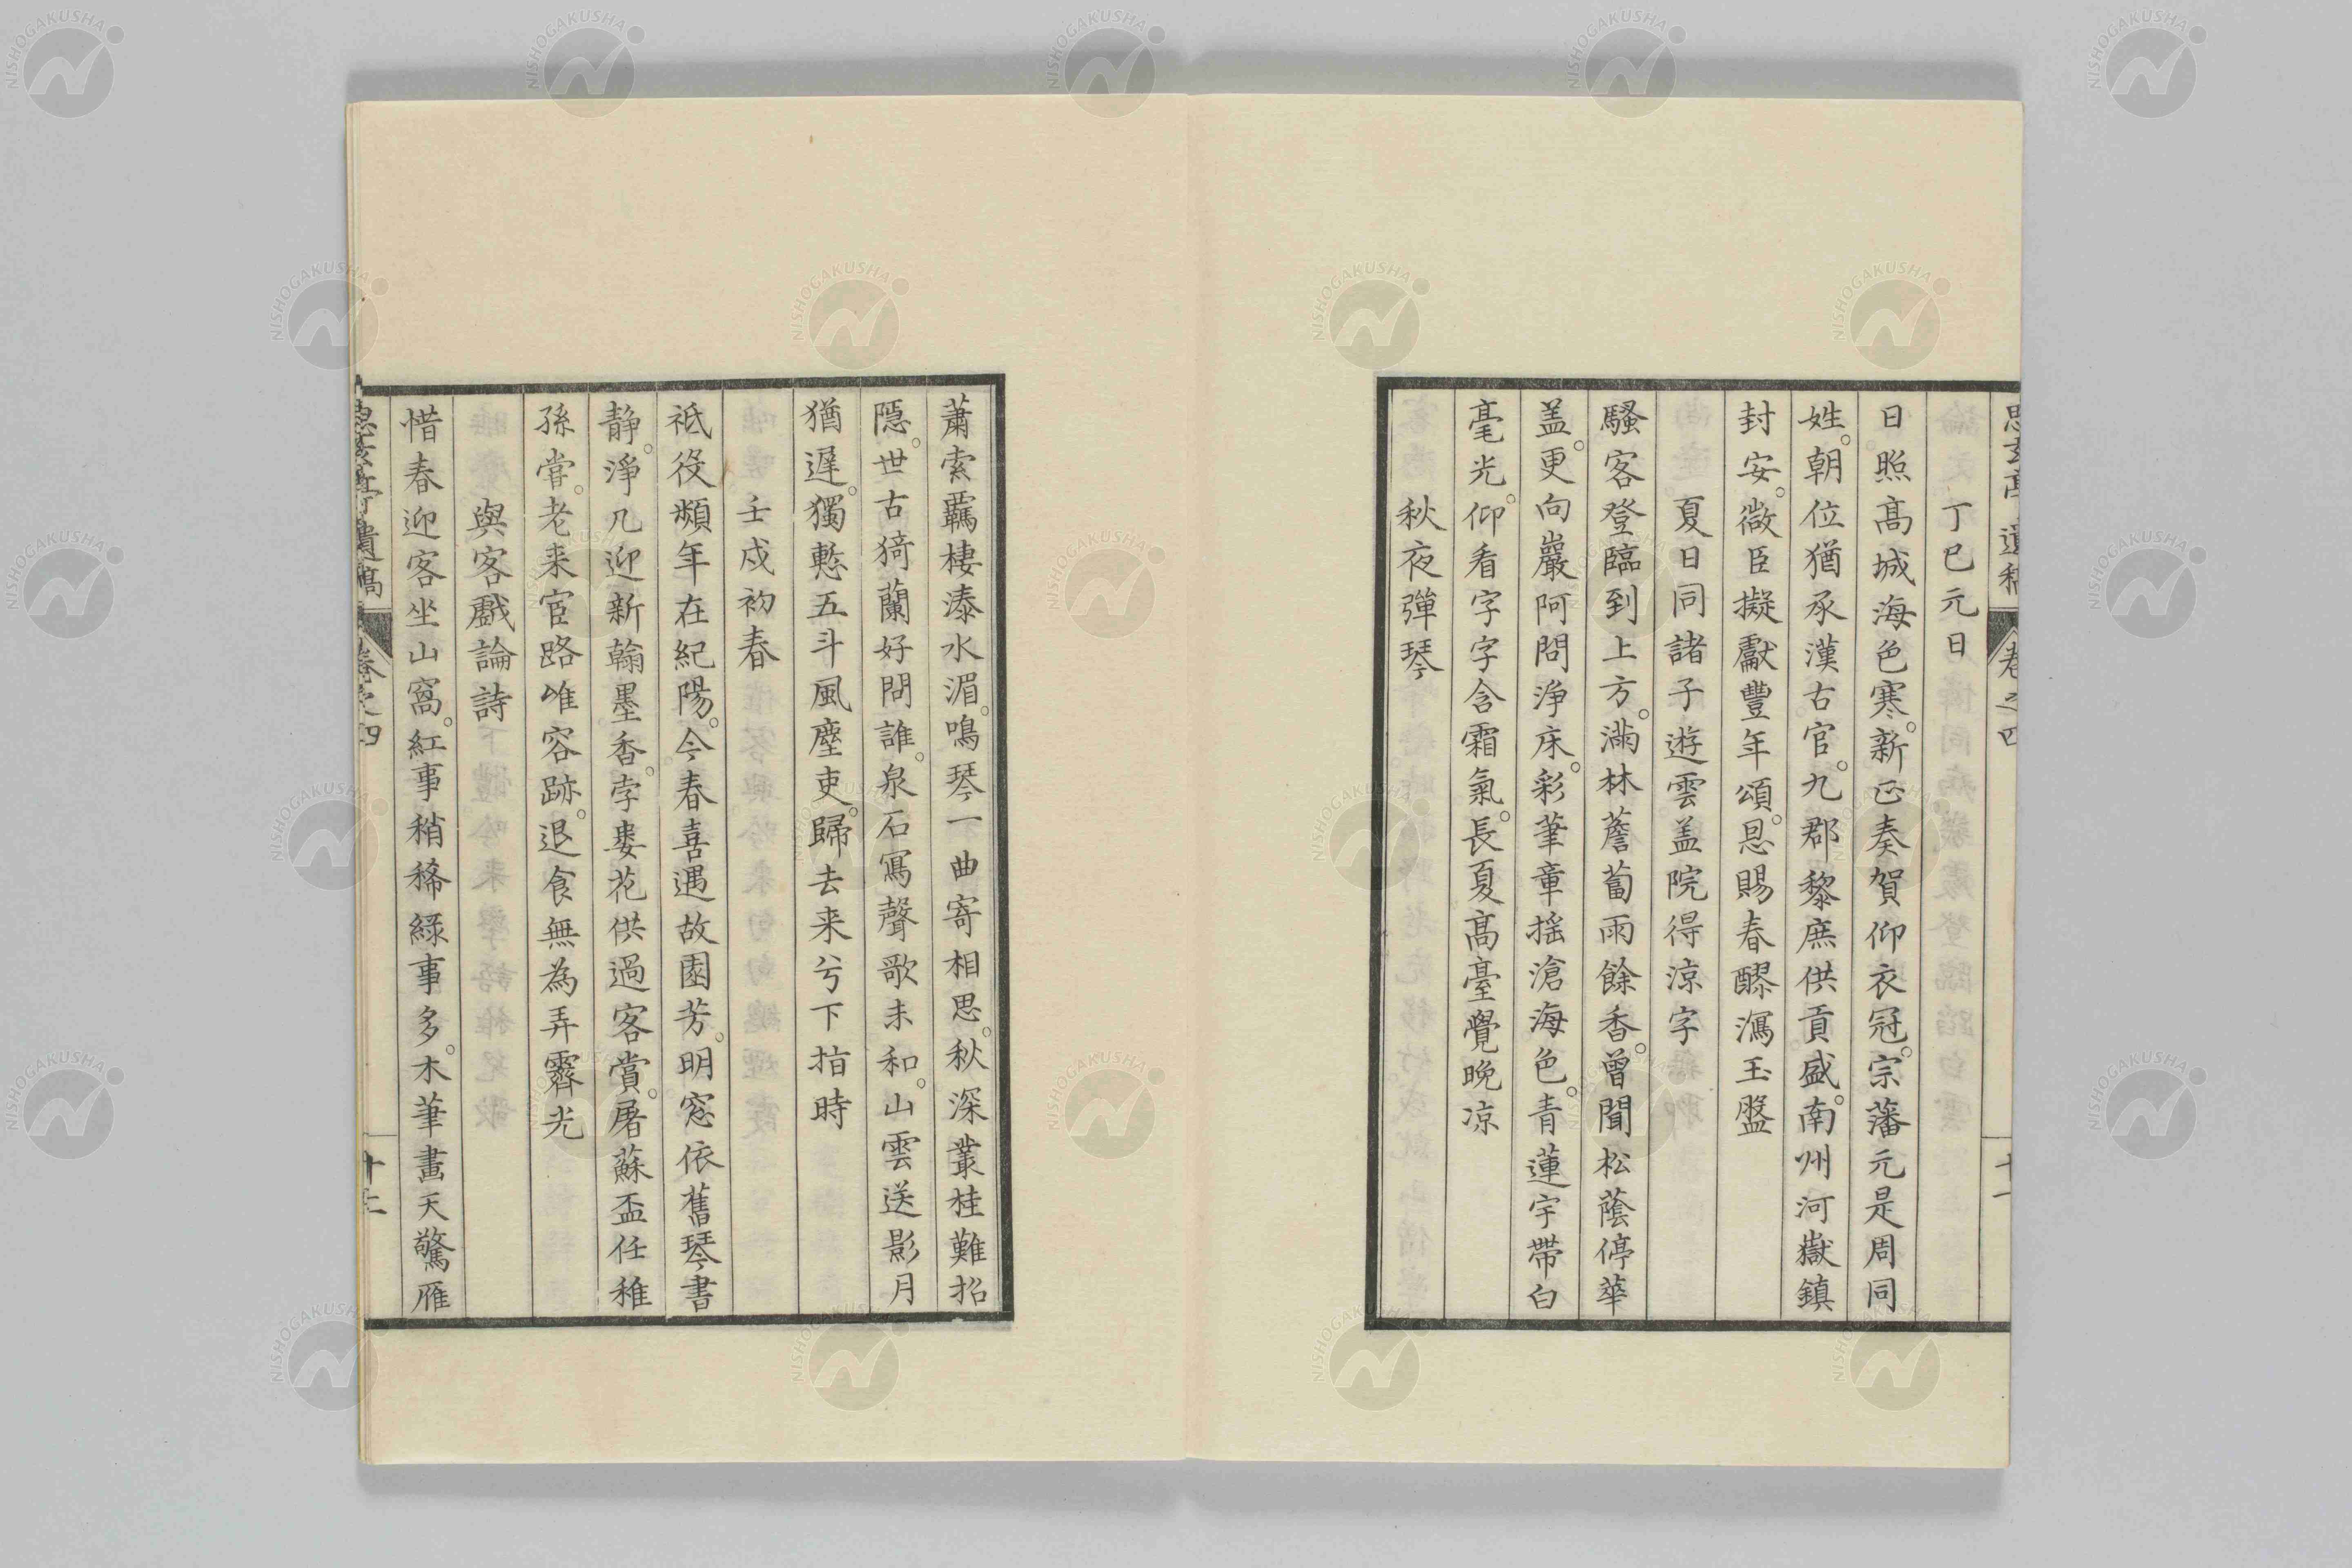 丁巳元日
日照髙城海色寒。新正奏賀仰衣冠。宗藩元是周同
姓。朝位猶承漢古官。九郡黎庶供貢盛。南州河嶽鎮
封安。微臣擬獻豐年頌。恩賜春醪瀉玉盤
夏日同諸子遊雲盖院得涼字
騷客登臨到上方。滿林薝蔔雨餘香。曾聞松蔭停華
盖。更向巖阿問淨床。彩筆章揺滄海色。青蓮宇帶白
毫光。仰看字字含霜氣。長夏髙臺覺晩凉
秋夜彈琴
蕭索覊棲溱水湄。鳴琴一曲寄相思。秋深叢桂難招
隱。世古猗蘭好問誰。泉石寫聲歌未和。山雲送影月
猶遲。獨慙五斗風塵吏。歸去来兮下指時
壬戍初春
祗役頻年在紀陽。今春喜遇故園芳。明窓依舊琴書
静。淨几迎新翰墨香。孛婁花供過客賞。屠蘇盃任稚
孫嘗。老来宦路唯容跡。退食無為弄霽光
與客戲論詩
惜春迎客坐山窩。紅事稍稀緑事多。木筆畫天驚雁
思玄亭遺稿
卷之四
十一
NISHOGAKUSHA